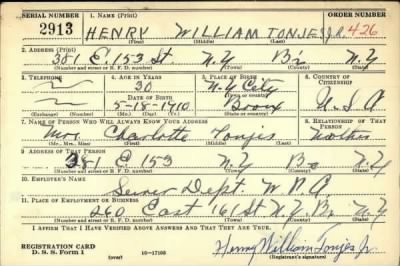 SERIAL NUMBER 1. NAME (Print) ORDER NUMBER
2913 HENRY WILLIAM TONJES JR. 426
(First) (Middle) (Last)
2. ADDRESS (Print)
381 E. 153 St. N.Y Bx N.Y
(Number and street or R. F. D. number) (Town) (County) (State)
3. TELEPHONE 4. AGE IN YEARS 5. PLACE OF BIRTH 6. COUNTRY OF CITIZENSHIP
30 N.Y City
DATE OF BIRTH (Town or county)
5-18-1910 Bronx U.S.A
(Exchange) (Number) (Mo.) (Day) (Yr.) (State or country)
7. NAME OF PERSON WHO WILL ALWAYS KNOW YOUR ADDRESS 8. RELATIONSHIP OF THAT PERSON
Mrs. Charlotte Tonjes Mother
(Mr., Mrs., Miss) (First) (Middle) (Last)
9. ADDRESS OF THAT PERSON
381 E 153 N.Y Bx N.Y
(Number and street or R. F. D. number) (Town) (County) (State)
10. EMPLOYER'S NAME
Sewer Dept. W.P.A
11. PLACE OF EMPLOYMENT OR BUSINESS
260 East 161 St N.Y. Bx N.Y
(Number and street or R. F. D. number) (Town) (County) (State)
I AFFIRM THAT I HAVE VERIFIED ABOVE ANSWERS AND THAT THEY ARE TRUE.
REGISTRATION CARD
D. S. S. Form 1 16-17105 Henry William Tonjes Jr.
(over) (Registrant's signature)